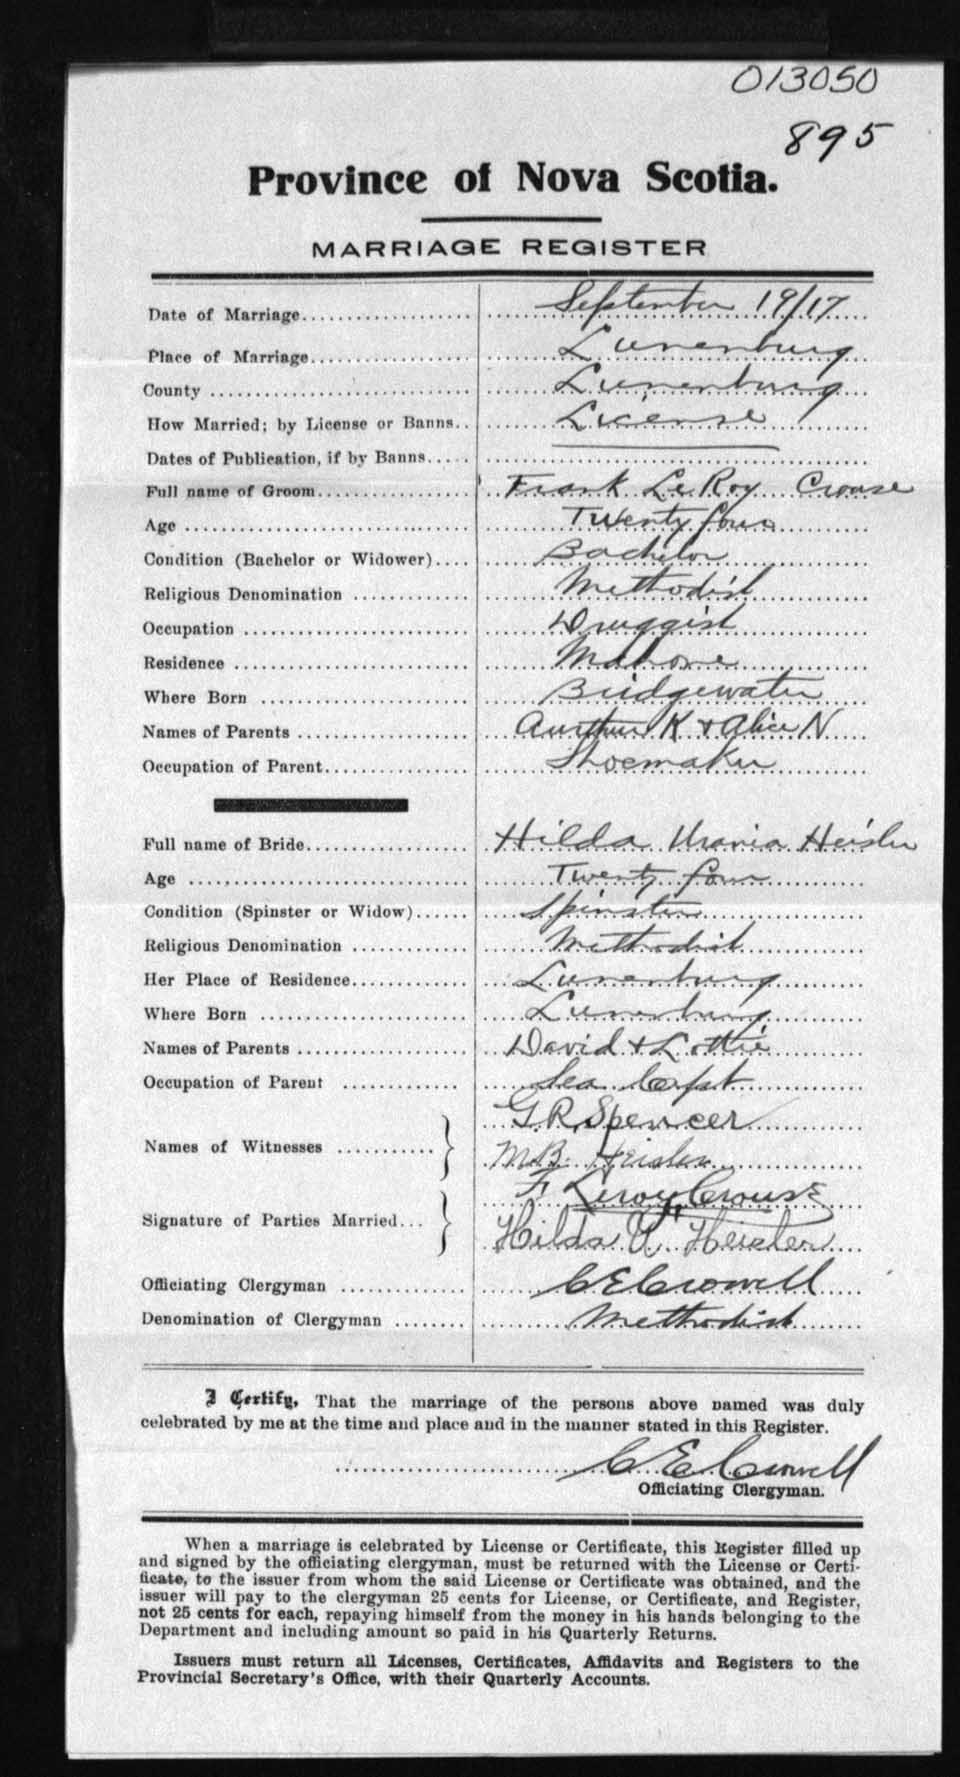 013050
895
Province of Nova Scotia.
MARRIAGE REGISTER
Date of Marriage.................... September 19/17
Place of Marriage................... Lunenburg
County ............................. Lunenburg
How Married; by License or Banns.. License
Dates of Publication, if by Banns.....
Full name of Groom.................. Frank LeRoy Crouse
Age ................................ Twenty four
Condition (Bachelor or Widower).... Bachelor
Religious Denomination ............. Methodist
Occupation ......................... Druggist
Residence .......................... Mahone
Where Born ......................... Bridgewater
Names of Parents ................... Aurthur K & Alice N
Occupation of Parent................ Shoemaker
Full name of Bride.................. Hilda Urania Heisler
Age ................................ Twenty four
Condition (Spinster or Widow)...... Spinster
Religious Denomination ............. Methodist
Her Place of Residence.............. Lunenburg
Where Born ......................... Lunenburg
Names of Parents ................... David & Lottie
Occupation of Parent ............... Sea Capt
Names of Witnesses ............ G.R. Spencer
M.B. Heisler
Signature of Parties Married... F. Leroy Crouse
Hilda U. Heisler
Officiating Clergyman .............. C E Crowell
Denomination of Clergyman ........ Methodist
I Certify, That the marriage of the persons above named was duly
celebrated by me at the time and place and in the manner stated in this Register.
C E Crowell
Officiating Clergyman.
When a marriage is celebrated by License or Certificate, this Register filled up
and signed by the officiating clergyman, must be returned with the License or Certi-
ficate, to the issuer from whom the said License or Certificate was obtained, and the
issuer will pay to the clergyman 25 cents for License, or Certificate, and Register,
not 25 cents for each, repaying himself from the money in his hands belonging to the
Department and including amount so paid in his Quarterly Returns.
Issuers must return all Licenses, Certificates, Affidavits and Registers to the
Provincial Secretary's Office, with their Quarterly Accounts.